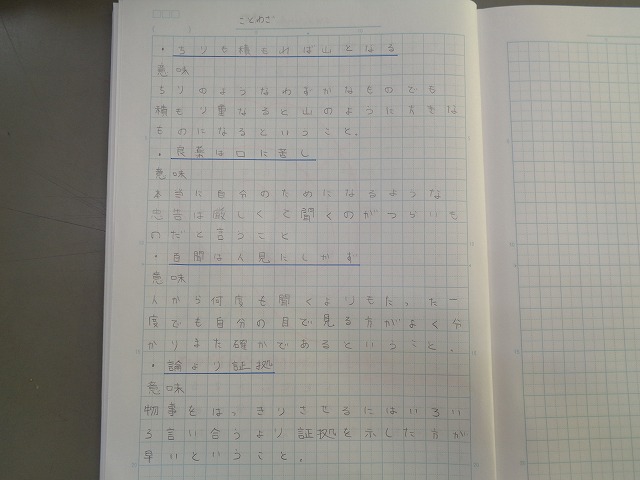 ことわざ
・ちりも積もれば山となる
意味
ちりのようなわずかなものでも
積もり重なると山のように大きな
ものになるということ。
・良薬は口に苦し
意味
本当に自分のためになるような
忠告は厳しくて聞くのがつらいも
のだと言うこと
・百聞は一見にしかず
意味
人から何度も聞くよりもたった一
度でも自分の目で見る方がよく分
かりまた確かであるということ。
・論より証拠
意味
物事をはっきりさせるにはいろい
ろ言い合うより証拠を示した方が
早いということ。